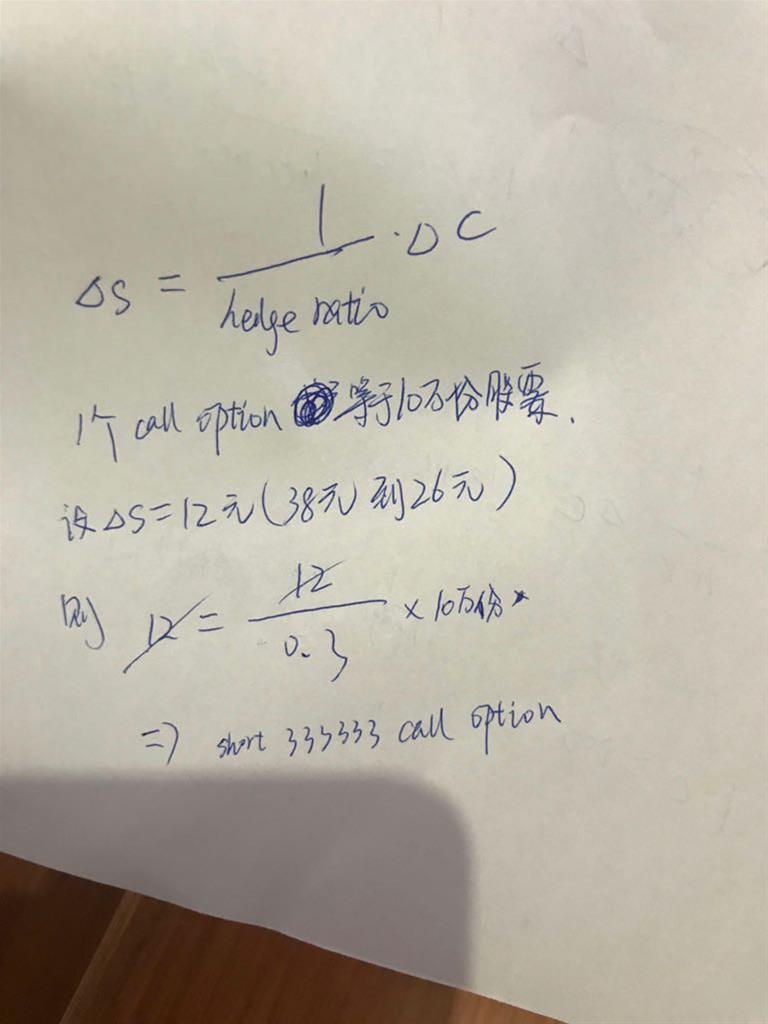 ΔS = 1/hedge ratio · ΔC
1个 call option 等于10万份股票.
设 ΔS=12元(38元到26元)
则 12 = 12/0.3 × 10万份
=> short 333333 call option